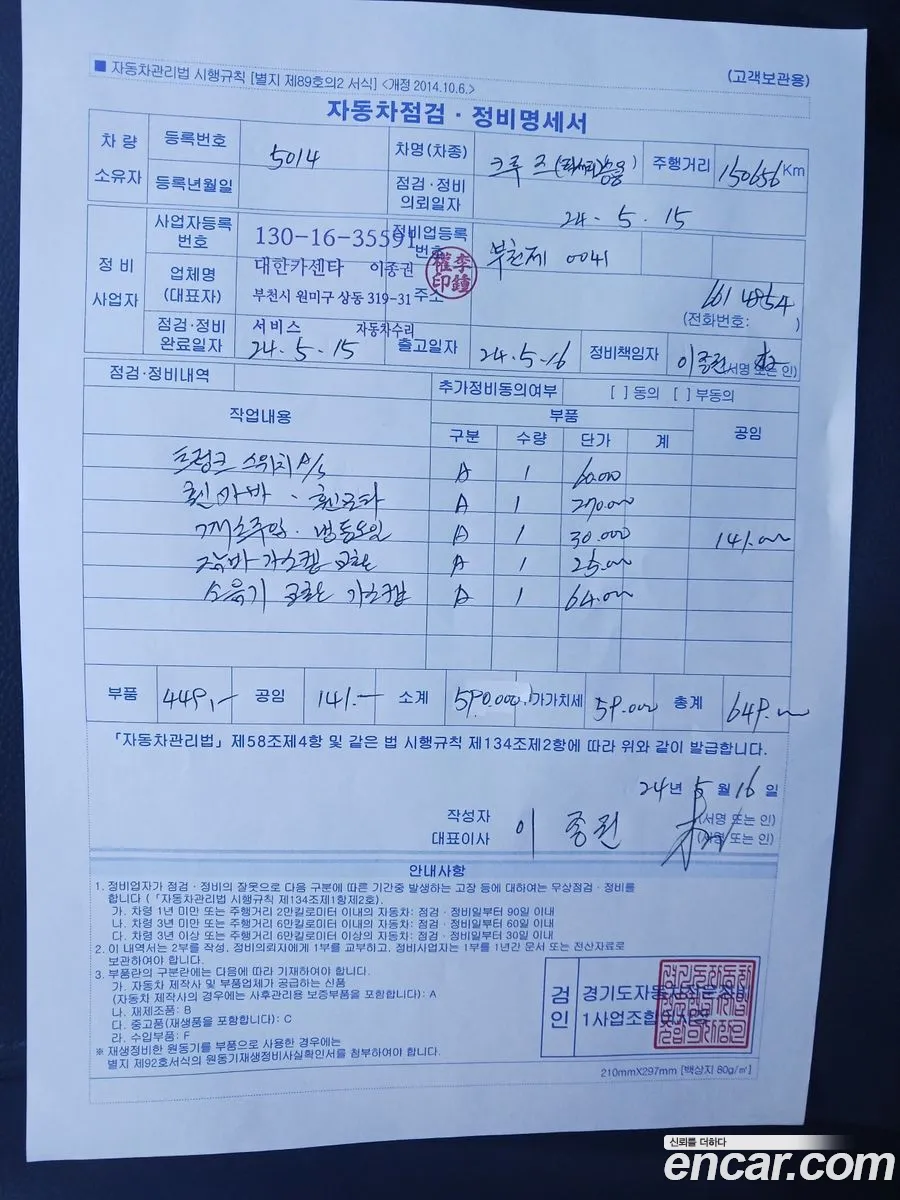 ■ 자동차관리법 시행규칙 [별지 제89호의2 서식] <개정 2014.10.6.>
(고객보관용)
자동차점검 · 정비명세서
차 량 소유자 등록번호 5014 차명(차종) 크루즈 주행거리 150656 Km
등록년월일 점검·정비 의뢰일자 24 - 5 . 15
정 비 사업자 사업자등록 번호 130-16-35591 정비업등록 번호 부천제 0041
업체명 (대표자) 대한카센타 이종권 주소
부천시 원미구 상동 319-31
661 4854
(전화번호: )
서비스 자동차수리
점검·정비 완료일자 24 - 5 - 15 출고일자 24 - 5 - 16 정비책임자 이종권 (서명 또는 인)
점검·정비내역 추가정비동의여부 [ ] 동의 [ ] 부동의
작업내용 부품 공임
구분 수량 단가 계
트렁크 스위치 A/S A 1 60.000
휀 A 1 270.000
냉동오일 A 1 30.000 141.000
가스켓 교환 A 1 25.000
교환 가스켓 A 1 64.000
부품 449,- 공임 141.- 소계 590.000 가가치세 59.000 총계 649.000
「자동차관리법」 제58조제4항 및 같은 법 시행규칙 제134조제2항에 따라 위와 같이 발급합니다.
24 년 5 월 16 일
작성자 (서명 또는 인)
대표이사 이 종 권 (서명 또는 인)
안내사항
1. 정비업자가 점검 · 정비의 잘못으로 다음 구분에 따른 기간중 발생하는 고장 등에 대하여는 무상점검 · 정비를
합니다 (「자동차관리법 시행규칙 제134조제1항제2호).
가. 차령 1년 미만 또는 주행거리 2만킬로미터 이내의 자동차: 점검 · 정비일부터 90일 이내
나. 차령 3년 미만 또는 주행거리 6만킬로미터 이내의 자동차: 점검 · 정비일부터 60일 이내
다. 차령 3년 이상 또는 주행거리 6만킬로미터 이상의 자동차: 점검 · 정비일부터 30일 이내
2. 이 내역서는 2부를 작성, 정비의뢰자에게 1부를 교부하고, 정비사업자는 1부를 1년간 문서 또는 전산자료로
보관하여야 합니다.
3. 부품란의 구분란에는 다음에 따라 기재하여야 합니다.
가. 자동차 제작사 및 부품업체가 공급하는 신품
(자동차 제작사의 경우에는 사후관리용 보증부품을 포함합니다): A
나. 재제조품: B
다. 중고품(재생품을 포함합니다): C
라. 수입부품: F
※ 재생정비한 원동기를 부품으로 사용한 경우에는
별지 제92호서식의 원동기재생정비사실확인서를 첨부하여야 합니다.
검 인
경기도자동차전문정비
1사업조합
210mmX297mm [백상지 80g/㎡]
신뢰를 더하다
encar.com